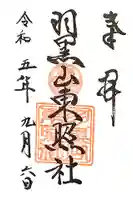 奉拝
羽黒山東照社
令和五年九月六日